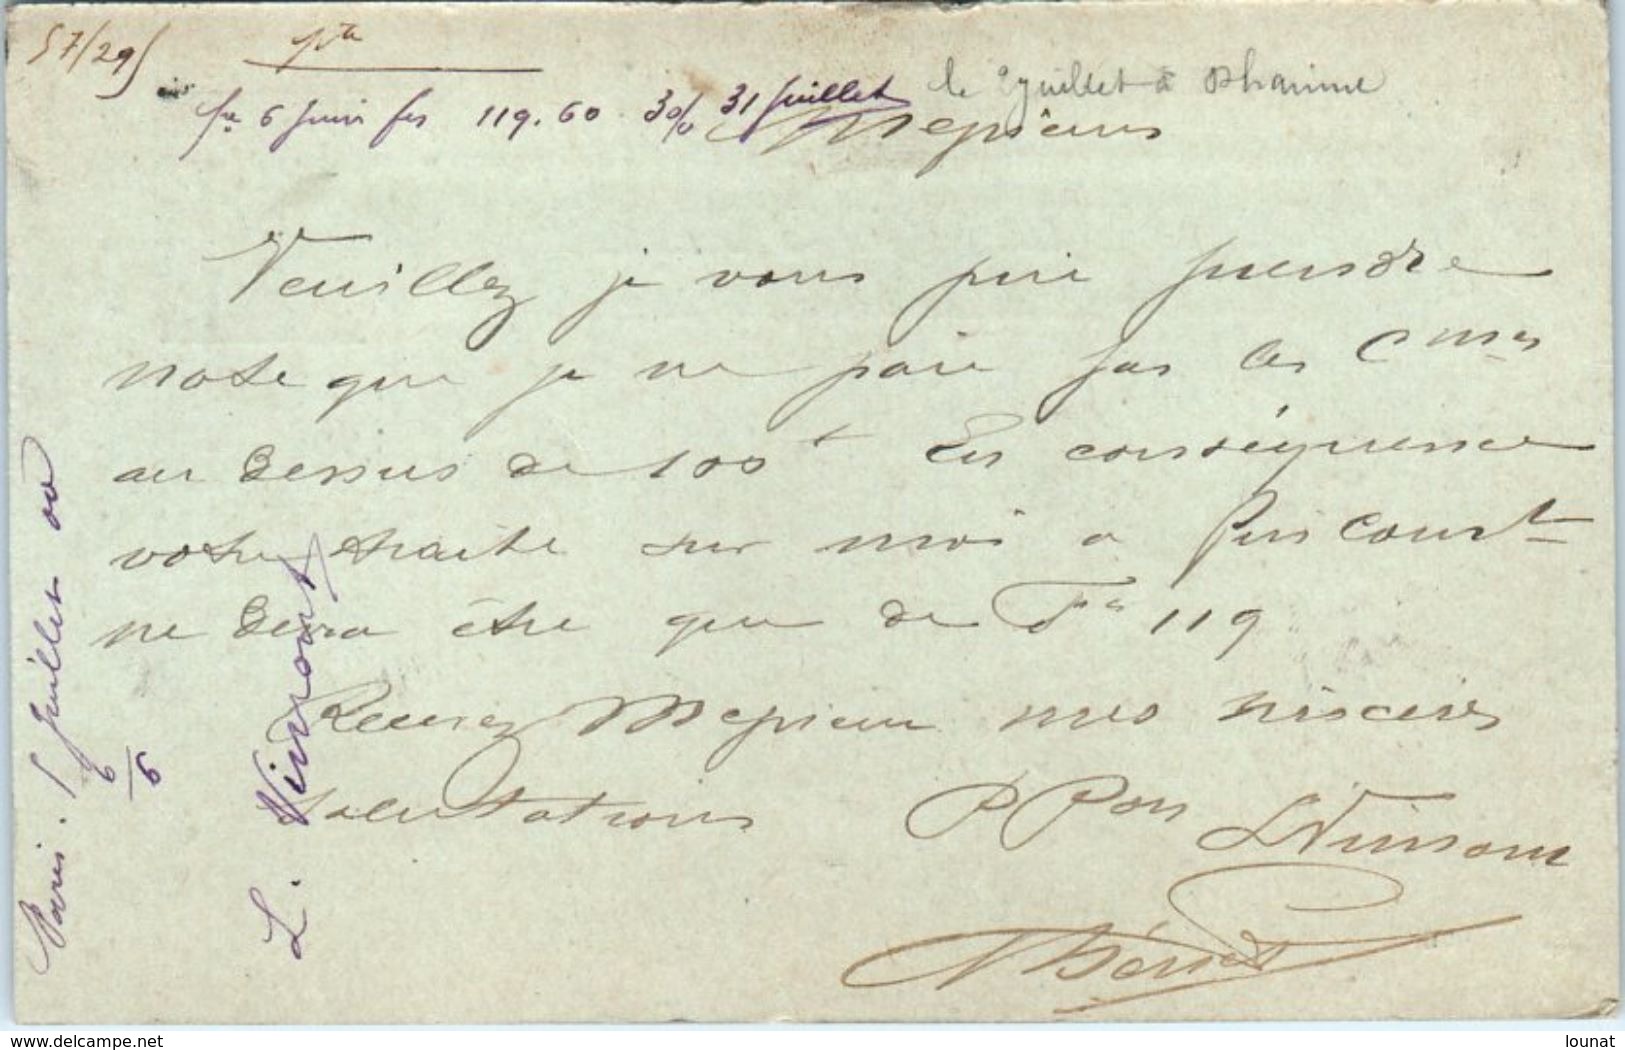 57/29
fre 6 Juin frs 119.60 3% 31 Juillet
le 2 juillet à
Messieurs
Veuillez je vous prie prendre
note que je ne paie pas les Cmes
au dessus de 100f En conséquence
votre traite sur moi à
ne devra être que de Frs 119
Recevez Messieurs mes sincères
salutations
P Pon L Vinsont
Paris. 5 Juillet 00
6/6
L. Vinsont
lounat
www.delcampe.net